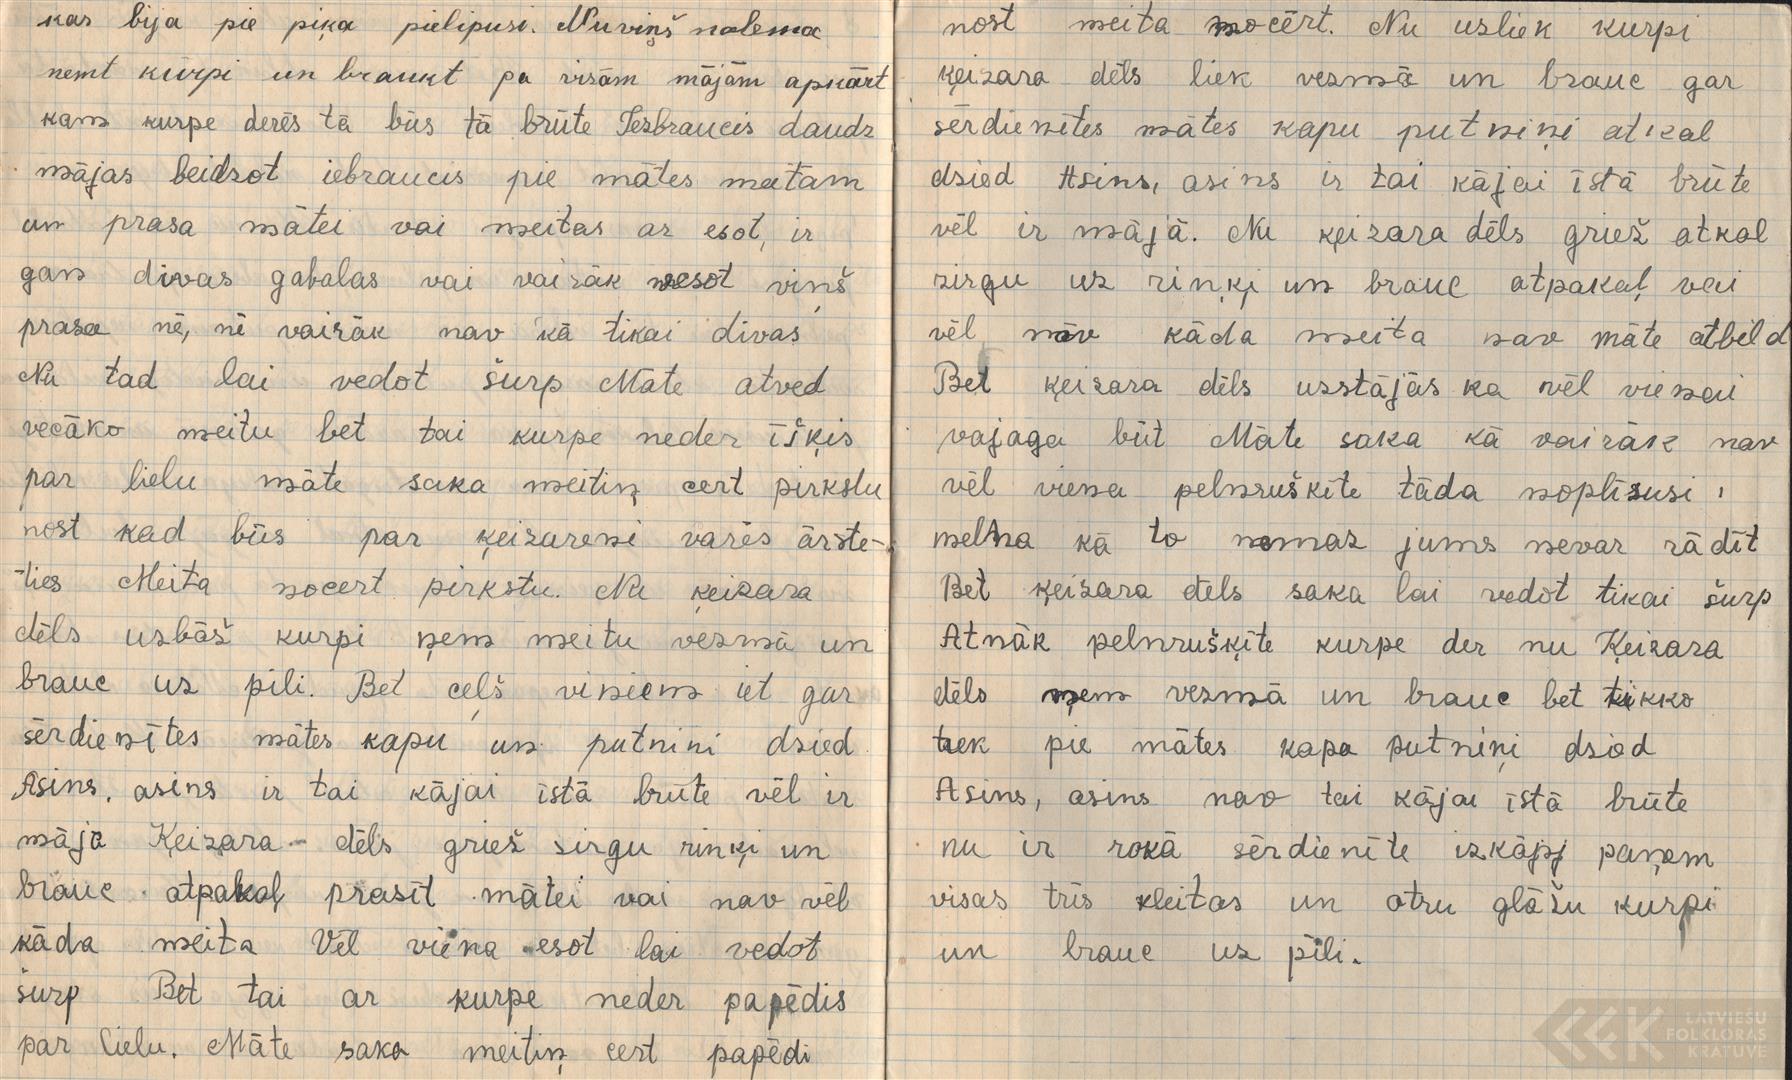 kas bija pie piķa pielipusi. Nu viņš nolema
ņemt kurpi un braukt pa visām mājām apkārt
kam kurpe derēs tā būs tā brūte Izbraucis daudz
mājas beidzot iebraucis pie mātes meitām
un prasa mātei vai meitas ar esot, ir
gan divas gabalas vai vairāk nesot viņš
prasa nē, nē vairāk nav kā tikai divas,
Nu tad lai vedot šurp Māte atved
vecāko meitu bet tai kurpe neder īšķis
par lielu māte saka meitiņ cert pirkstu
nost kad būs par ķeizareni varēs ārstē-
-ties Meita nocert pirkstu. Nu ķeizara
dēls uzbāž kurpi ņem meitu vezmā un
brauc uz pili. Bet ceļš viņiem iet gar
sērdienītes mātes kapu un putniņi dzied
Asins, asins ir tai kājai īstā brūte vēl ir
mājā Ķeizara - dēls griež zirgu riņķi un
brauc atpakaļ prasīt mātei vai nav vēl
kāda meita Vēl viena esot lai vedot
šurp Bet tai ar kurpe neder papēdis
par lielu. Māte saka meitiņ cert papēdi
nost meita nocērt. Nu uzliek kurpi
ķeizara dēls liek vezmā un brauc gar
sērdienītes mātes kapu putniņi atkal
dzied Asins, asins ir tai kājai īstā brūte
vēl ir mājā. Nu ķeizara dēls griež atkal
zirgu uz riņķi un brauc atpakaļ vai
vēl nav kāda meita nav māte atbild
Bet ķeizara dēls uzstājās ka vēl vienai
vajaga būt Māte saka kā vairāk nav
vēl viena pelnrušķīte tāda noplīsusi,
melna kā to nemaz jums nevar rādīt
Bet ķeizara dēls saka lai vedot tikai šurp
Atnāk pelnrušķīte kurpe der nu Ķeizara
dēls ņem vezmā un brauc bet tikko
tiek pie mātes kapa putniņi dzied
Asins, asins nav tai kājai īstā brūte
nu ir rokā sērdienīte izkāpj paņem
visas trīs kleitas un otru glāžu kurpi
un brauc uz pili.
LATVIEŠU
FOLKLORAS
KRĀTUVE